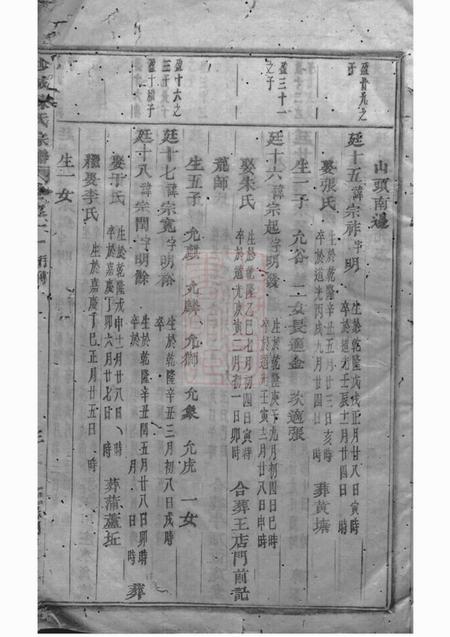 山頭南邊
盈廿九之
子
廷十五諱宗祚字明 生於乾隆戊戌正月廿八日寅時
卒於道光壬辰十一月廿四日 時
娶張氏 生於乾隆辛丑五月廿三日亥時
卒於道光丙戌九月廿四日 時 葬黄塘
生一子 允谷 一女長適金 次適張
盈三十一
之子
廷十六諱宗起字明發 生於乾隆庚子九月初四日巳時
卒於道光壬寅十二月廿八日申時
娶朱氏 生於乾隆乙巳七月初四日寅時
卒於道光庚寅二月初一日卯時 合葬王店門前記
荒師
生五子 允麒 允麟 允獅 允象 允虎 一女
盈十六之
三子
廷十七諱宗寬字明裕 生於乾隆辛丑三月初八日戌時
卒
盈十 繼子
廷十八諱宗閏字明餘 生於乾隆辛丑閏五月廿八日卯時
卒於 月 日 時 葬
娶于氏 生於乾隆戊申十二月廿八日 時
卒於嘉慶丁卯六月廿七日 時 葬蒲蘆坵
繼娶李氏 生於嘉慶丁巳正月廿五日 時
生一女